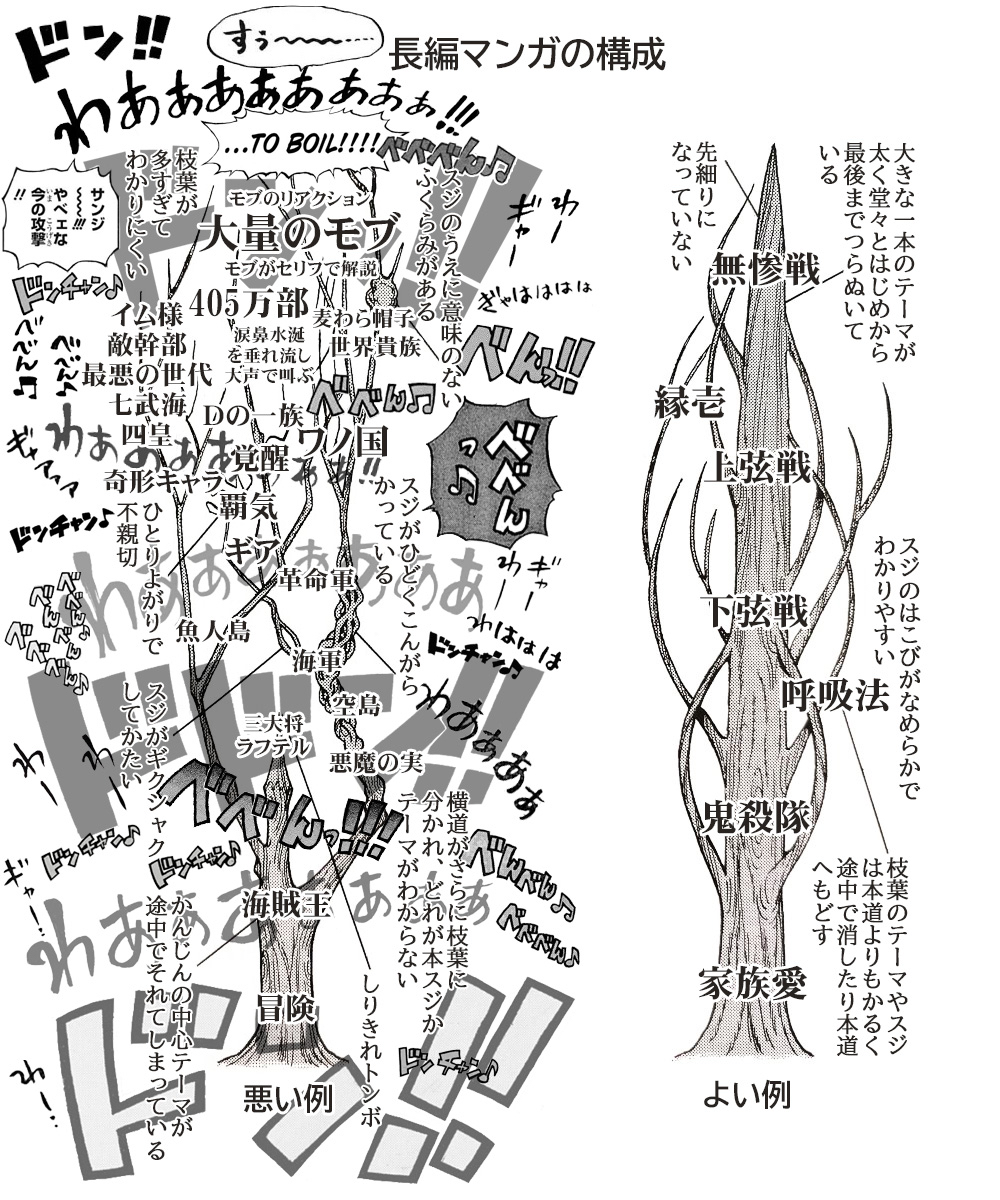 長編マンガの構成
ドン!!
すぅ〜〜〜……
わあぁぁあぁぁあぁぁ!!!
...TO BOIL!!!!
べべべん♫
サンジ
〜〜!!!
やべェな
今の攻撃
いま
こうげき
!!
枝葉が
多すぎて
わかりにくい
ドン!!
モブのリアクション
大量のモブ
モブがセリフで解説
スジのうえに意味のない
ふくらみがある
ギャー
わー
ぎゃはははは
ドンチャン♪
405万部
イム様
敵幹部
最悪の世代
七武海
四皇
奇形キャラ
涙鼻水涎
を垂れ流し
大声で叫ぶ
麦わら帽子
世界貴族
べん!!
べんべべ♫
べべん♫
Dの一族
ワノ国
覚醒
覇気
ギア
べべんっ♫
ギャアァァ
ドンチャン♪
ひとりよがりで
不親切
スジがひどくこんがら
かっている
革命軍
魚人島
海軍
空島
三大将
ラフテル
悪魔の実
わー
ギャー
わははは
ドンチャン♫
わあぁぁあぁ
スジがギクシャク
してかたい
ドドン!!
べべんっ!!!
横道がさらに枝葉に
分かれ、どれが本スジか
テーマがわからない
ドンチャン♫
ドンチャン♫
べんべん♫
べべべん♫
海賊王
かんじんの中心テーマが
途中でそれてしまっている
しりきれトンボ
冒険
ドンチャン♫
ドン!!
悪い例
大きな一本のテーマが
太く堂々とはじめから
最後までつらぬいて
いる
先細りに
なっていない
無惨戦
縁壱
上弦戦
スジのはこびがなめらかで
わかりやすい
下弦戦
呼吸法
鬼殺隊
枝葉のテーマやスジ
は本道よりもかるく
途中で消したり本道
へもどす
家族愛
よい例